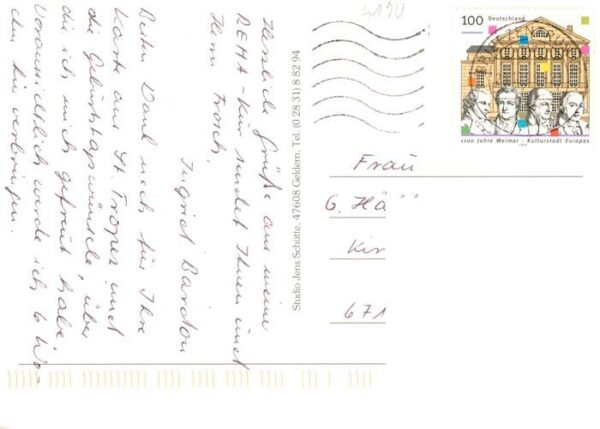 Herzliche Grüße aus meiner
REHA-Kur sendet Ihnen und
Herrn Frosch,
Ingrid Bardon
Besten Dank noch für Ihre
Karte aus St. Tropez und
die Geburtstagswünsche, über
die ich mich gefreut habe.
Voraussichtlich werde ich 6 Wo-
chen hier verbringen.
Studio Jens Schütte, 47608 Geldern, Tel. (0 28 31) 8 82 94
4190
100 Deutschland
1100 Jahre Weimar - Kulturstadt Europas
1999
Frau
G. Hä
Kir
671